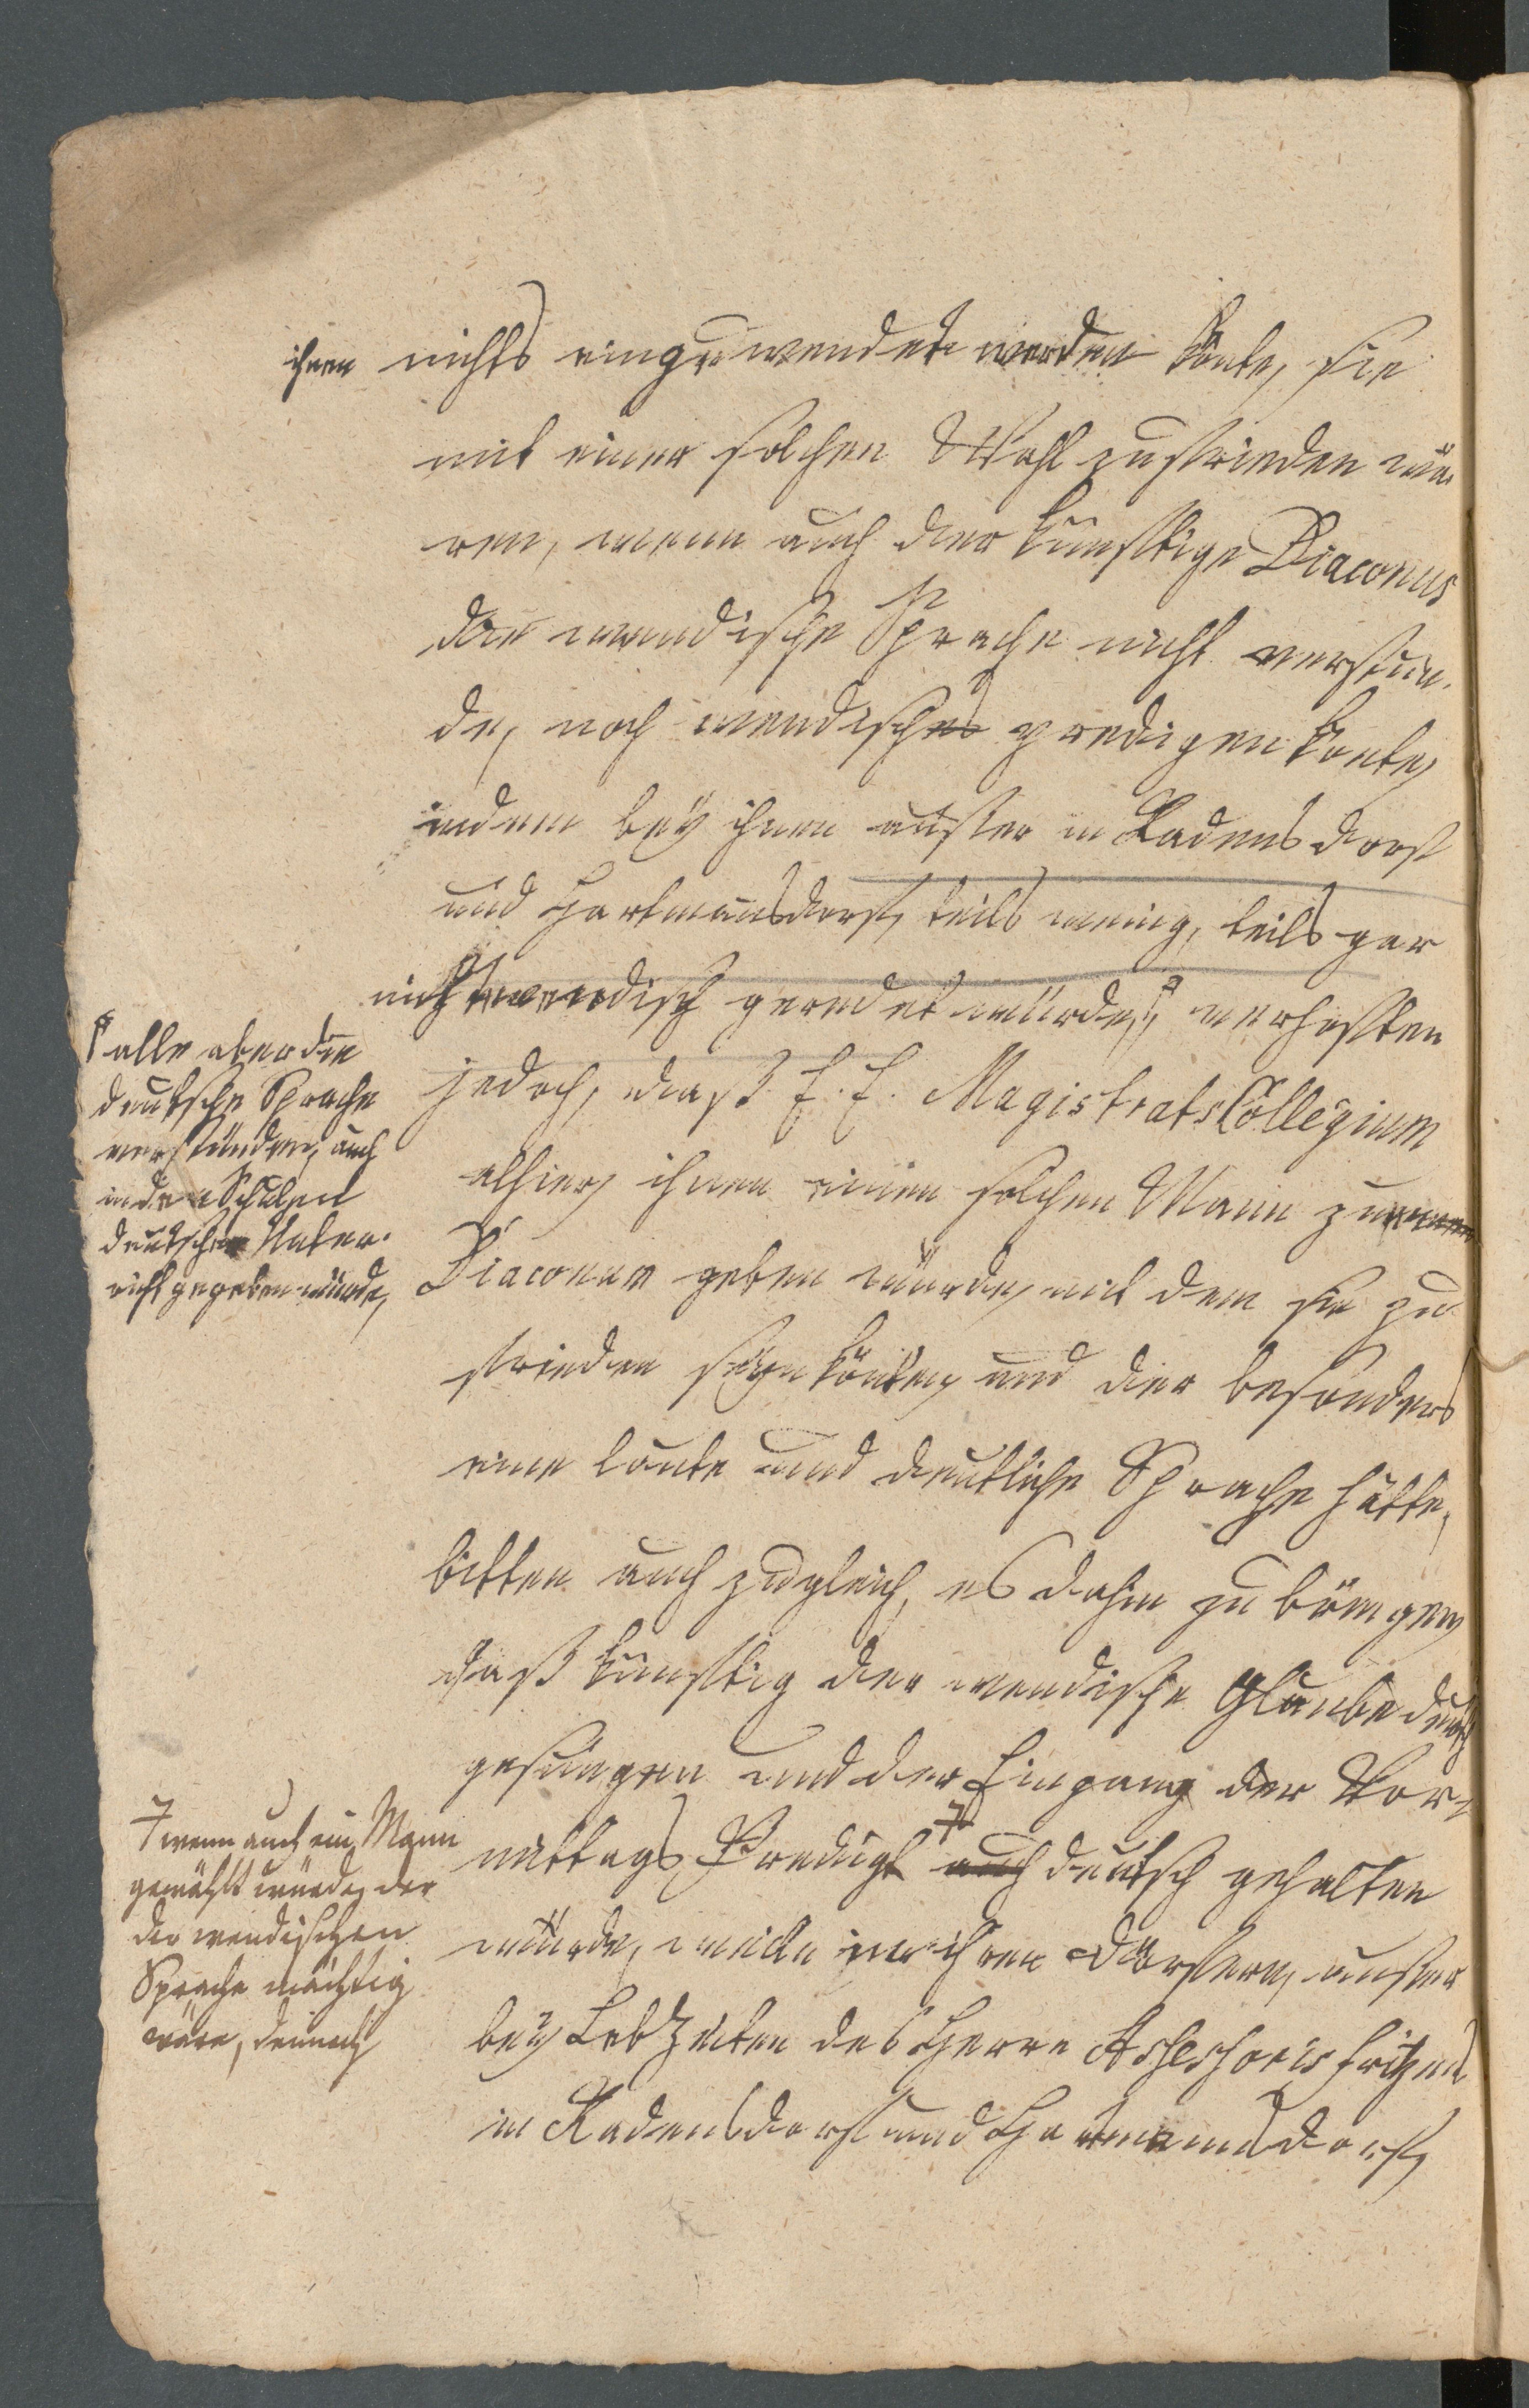 ihnen nichts eingewendet werden könte, sie
mit einer solchen Wahl zufrieden wä-
ren, wenn auch der künftige Diaconus
die wendische Sprache nicht verstün-
de, noch wendisch predigen könte,
indem bey ihnen außer in Radensdorf
und Hartmansdorf, teils wenig, teils gar
nicht wendisch geredet würde, verhoften
jedoch, daß E. E. Magistrats Collegium
alhier, ihnen einen solchen Mann zum
Diaconum geben würde, mit dem sie zu-
frieden seyn könten, und der besonders
eine laute und deutliche Sprache hätte,
bitten auch zugleich, es dahin zu bringen,
daß künftig der wendische Glaube deutsch
gesungen und der Eingang der Vor-
mittags Predigt auch deutsch gehalten
würde, weil in ihren Dörfern, außer
bey Lebzeiten des Herrn Assessoris Fritzen
in Radensdorf und Hartmansdorf,
alle aber die
deutsche Sprache
verstünden, auch
in den Schulen
deutscher Unter-
richt gegeben würde,
wenn auch ein Mann
gewählt würde, der
der wendischen
Sprache mächtig
wäre, dennoch